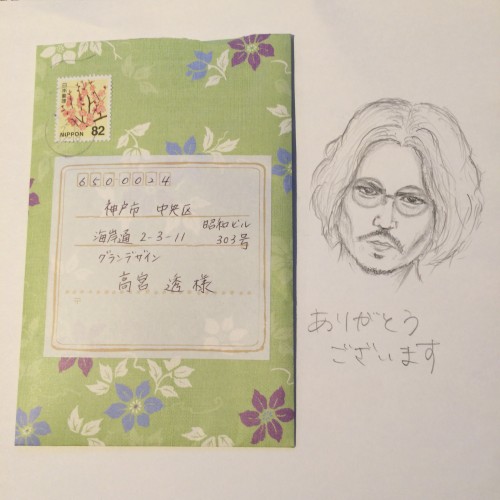 日本郵便
NIPPON 82
6500024
神戸市 中央区
海岸通 2-3-11 昭和ビル
303号
グランデザイン
高宮 透 様
ありがとう
ございます